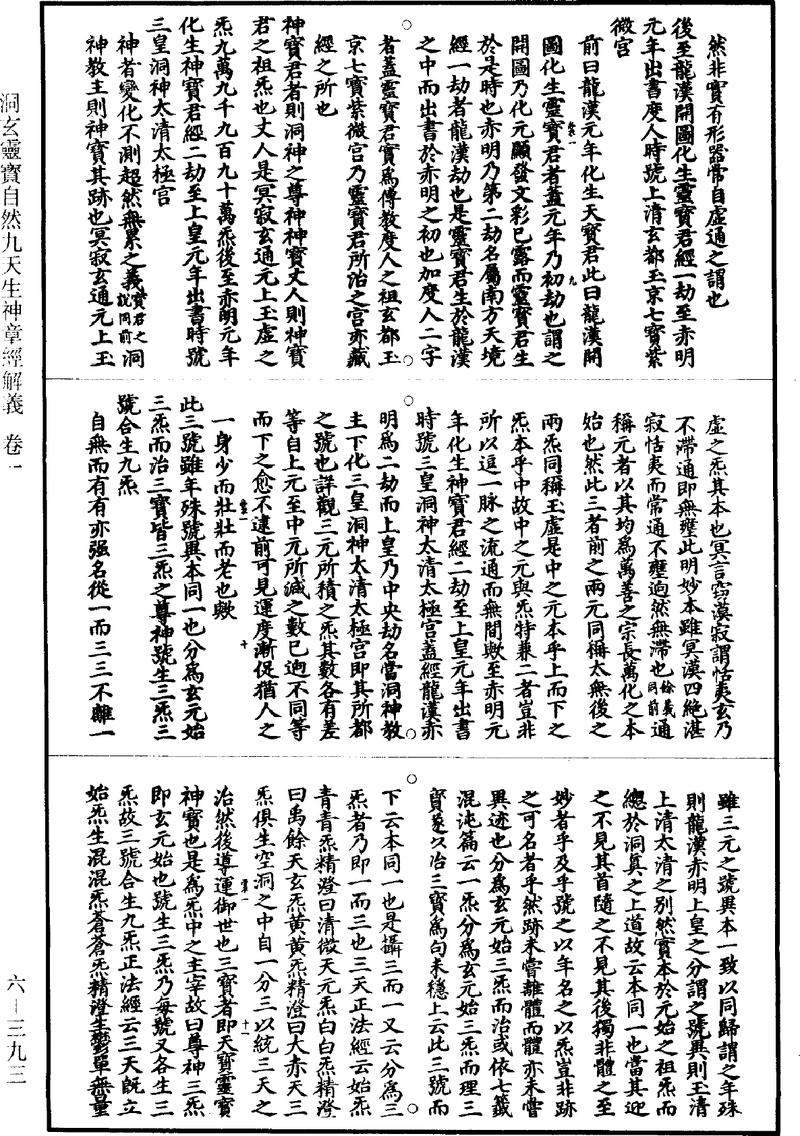 然非實有形器常自虛通之謂也
後至龍漢開圖化生靈寶君經一劫至赤明
元年出書度人時號上清玄都玉京七寶紫
微宮
前曰龍漢元年化生天寶君此曰龍漢開
圖化生靈寶君者蓋元年乃初劫也謂之
開圖乃化元顯發文彩已露而靈寶君生
於是時也赤明乃第二劫名屬南方天境
經一劫者龍漢劫也是靈寶君生於龍漢
之中而出書於赤明之初也加度人二字
者蓋靈寶君實為傳教度人之祖玄都玉
京七寶紫微宮乃靈寶君所治之宮亦藏
經之所也
神寶君者則洞神之尊神神寶丈人則神寶
君之祖炁也丈人是冥寂玄通元上玉虛之
炁九萬九千九百九十萬炁後至赤明元年
化生神寶君經二劫至上皇元年出書時號
三皇洞神太清太極宮
神者變化不測超然無累之義寶君之說同前洞
神教主則神寶其跡也冥寂玄通元上玉
虛之炁其本也冥言窈漠寂謂恬夷玄乃
不滯通即無壅此明妙本雖冥漠四絶湛
寂恬夷而常通不壅逈然無滯也餘義同前通
稱元者以其均為萬善之宗長萬化之本
始也然此三者前之兩元同稱太無後之
兩炁同稱玉虛是中之元本乎上而下之
炁本乎中故中之元與炁特兼二者豈非
所以逗一脉之流通而無間歟至赤明元
年化生神寶君經二劫至上皇元年出書
時號三皇洞神太清太極宮蓋經龍漢赤
明為二劫而上皇乃中央劫名當洞神教
主下化三皇洞神太清太極宮即其所都
之號也詳觀三元所積之炁其數各有差
等自上元至中元所減之數已逈不同等
而下之愈不逮前可見運度漸促猶人之
一身少而壯壯而老也歟
此三號雖年殊號異本同一也分為玄元始
三炁而治三寶皆三炁之尊神號生三炁三
號合生九炁
自無而有有亦强名從一而三三不離一
雖三元之號異本一致以同歸謂之年殊
則龍漢赤明上皇之分謂之號異則玉清
上清太清之別然實本於元始之祖炁而
總於洞真之上道故云本同一也當其迎
之不見其首隨之不見其後獨非體之至
妙者乎及乎號之以年名之以炁豈非跡
之可名者乎然跡未嘗離體而體亦未嘗
異迹也分為玄元始三炁而治或依七籤
混沌篇云一炁分為玄元始三炁而理三
寶遂以治三寶為句未穩上云此三號而
下云本同一也是攝三而一又云分為三
炁者乃即一而三也三天正法經云始炁
青青炁精澄曰清微天元炁白白炁精澄
曰禹餘天玄炁黃黃炁精澄曰大赤天三
炁俱生空洞之中自一分三以統三天之
治然後導運御世也三寶者即天寶靈寶
神寶也是為炁中之主宰故曰尊神三炁
即玄元始也號生三炁乃每號又各生三
炁故三號合生九炁正法經云三天既立
始炁生混混炁蒼蒼炁精澄生鬱單無量
洞玄靈寶自然九天生神章經解義 卷一
六－三九三